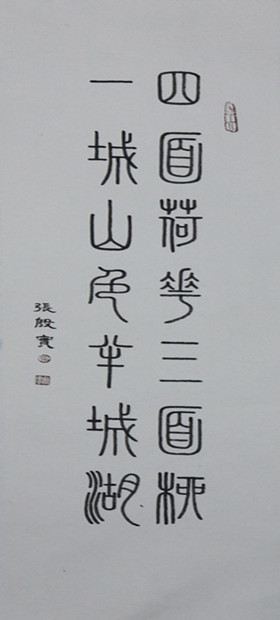 四面荷花三面柳
一城山色半城湖
張殿實